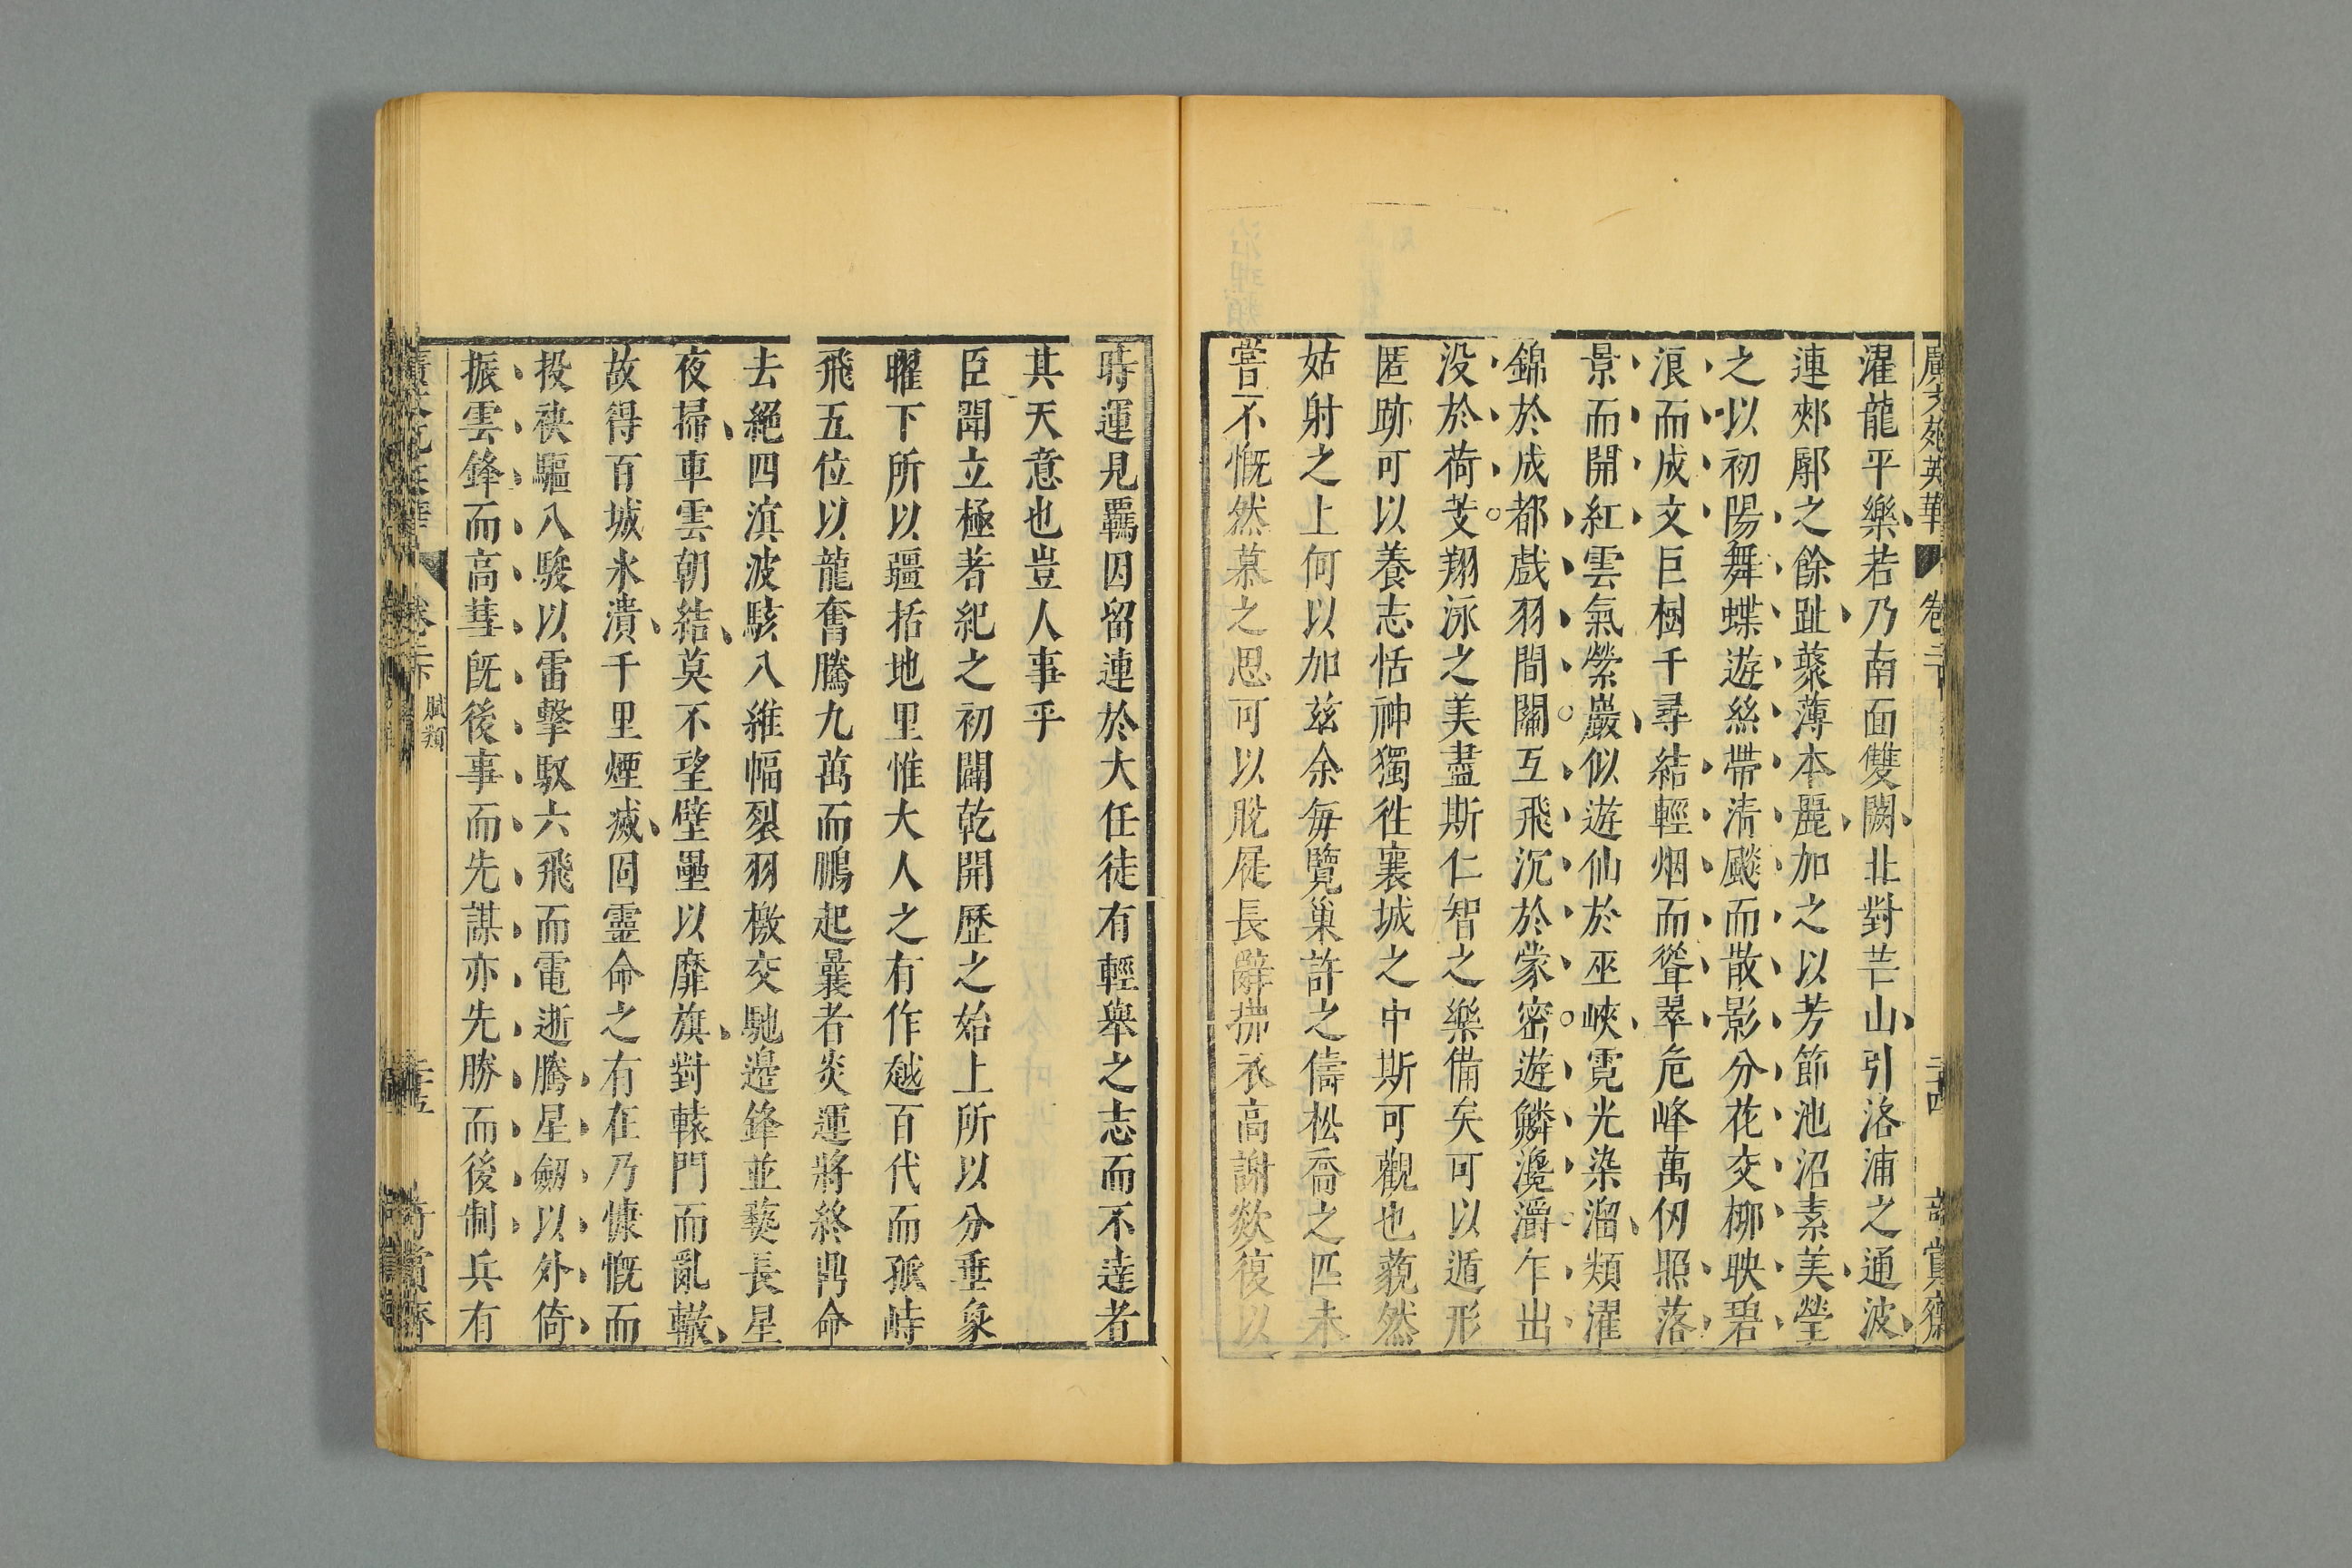 廣文苑英華 卷二十 二十四 奇賞齋
濯龍平樂若乃南面雙闕北對芒山引洛浦之通波
連郟鄏之餘趾蘂薄本麗加之以芳節池沼素美瑩
之以初陽舞蝶遊絲帶清颷而散影分花交柳映碧
浪而成文巨樹千尋結輕烟而聳翠危峰萬仞照落
景而開紅雲氣縈巖似遊仙於巫峽霓光染溜類濯
錦於成都戲羽間關互飛沉於蒙密遊鱗瀺灂乍出
没於荷芰翔泳之美盡斯仁智之樂備矣可以遁形
匿跡可以養志恬神獨徃襄城之中斯可觀也藐然
姑射之上何以加兹余每覽巢許之儔松喬之匹未
嘗不慨然慕之思可以脫屣長辭拂衣高謝欻復以
時運見羈因留連於大任徒有輕舉之志而不達者
其天意也豈人事乎
臣聞立極著紀之初闢乾開歷之始上所以分垂象
曜下所以疆括地里惟大人之有作越百代而孤峙
飛五位以龍奮騰九萬而鵬起曩者炎運將終鼎命
去絕四滇波駭八維幅裂羽檄交馳邊鋒並蓺長星
夜掃車雲朝結莫不望壁壘以靡旗對轅門而亂轍
故得百城氷潰千里煙滅固靈命之有在乃慷慨而
投袂驅八駿以雷擊馭六飛而電逝騰星劒以外倚
振雲鋒而高彗旣後事而先謀亦先勝而後制兵有
卷二十 賦類 二十五 奇賞齋